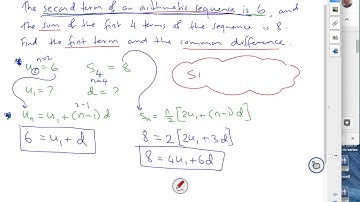 The second term of an arithmetic sequence is 6, and
the sum of the first 4 terms of the sequence is 8.
Find the first term and the common difference.
n=2
u₂=6 S₄ = 8
n=4
u₁ = ? d = ?
S1
2-1
uₙ = u₁ + (n-1)d Sₙ = n/2 [2u₁ + (n-1)d]
6 = u₁ + d 8 = 2 [2u₁ + 3d]
8 = 4u₁ + 6d